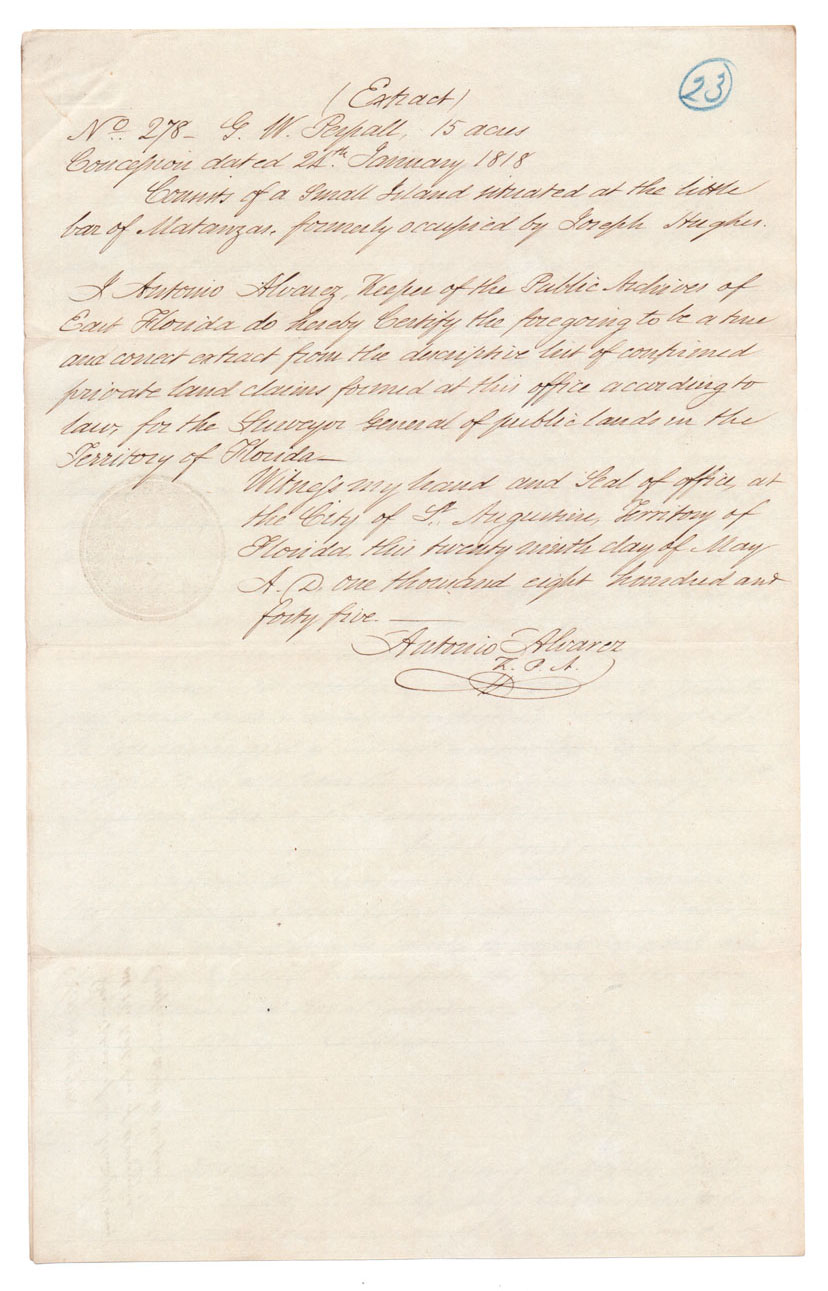 23
(Extract)
No. 278 - G. W. Perpall, 15 acres
Concession dated 24th. January 1818
Consists of a Small Island situated at the little
bar of Matanzas, formerly occupied by Joseph Hughes.
I Antonio Alvarez, Keeper of the Public Archives of
East Florida do hereby Certify the foregoing to be a true
and correct extract from the descriptive list of confirmed
private land claims formed at this office according to
law, for the Surveyor General of public lands in the
Territory of Florida—
Witness my hand and Seal of office, at
the City of St. Augustine, Territory of
Florida this twenty ninth day of May
A. D. one thousand eight hundred and
forty five. —
Antonio Alvarez
K. P. A.